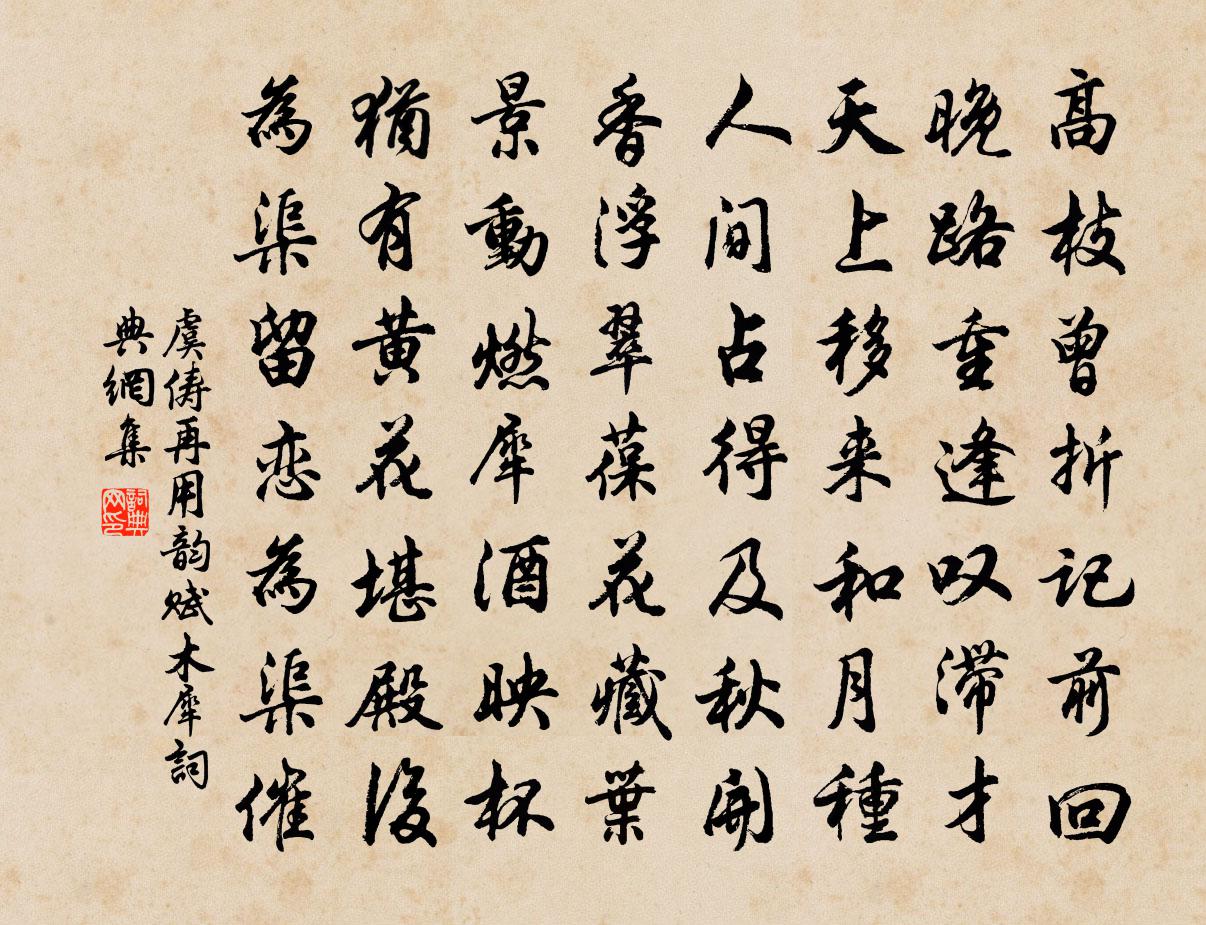 高枝曾折记前回
晚路重逢叹滞才
天上移来和月種
人间占得及秋開
香浮翠葆花藏葉
景動燃犀酒映杯
猶有黄花堪殿後
為渠留恋為渠催
虞俦再用韵赋木犀詞
典網集
詞典
网印